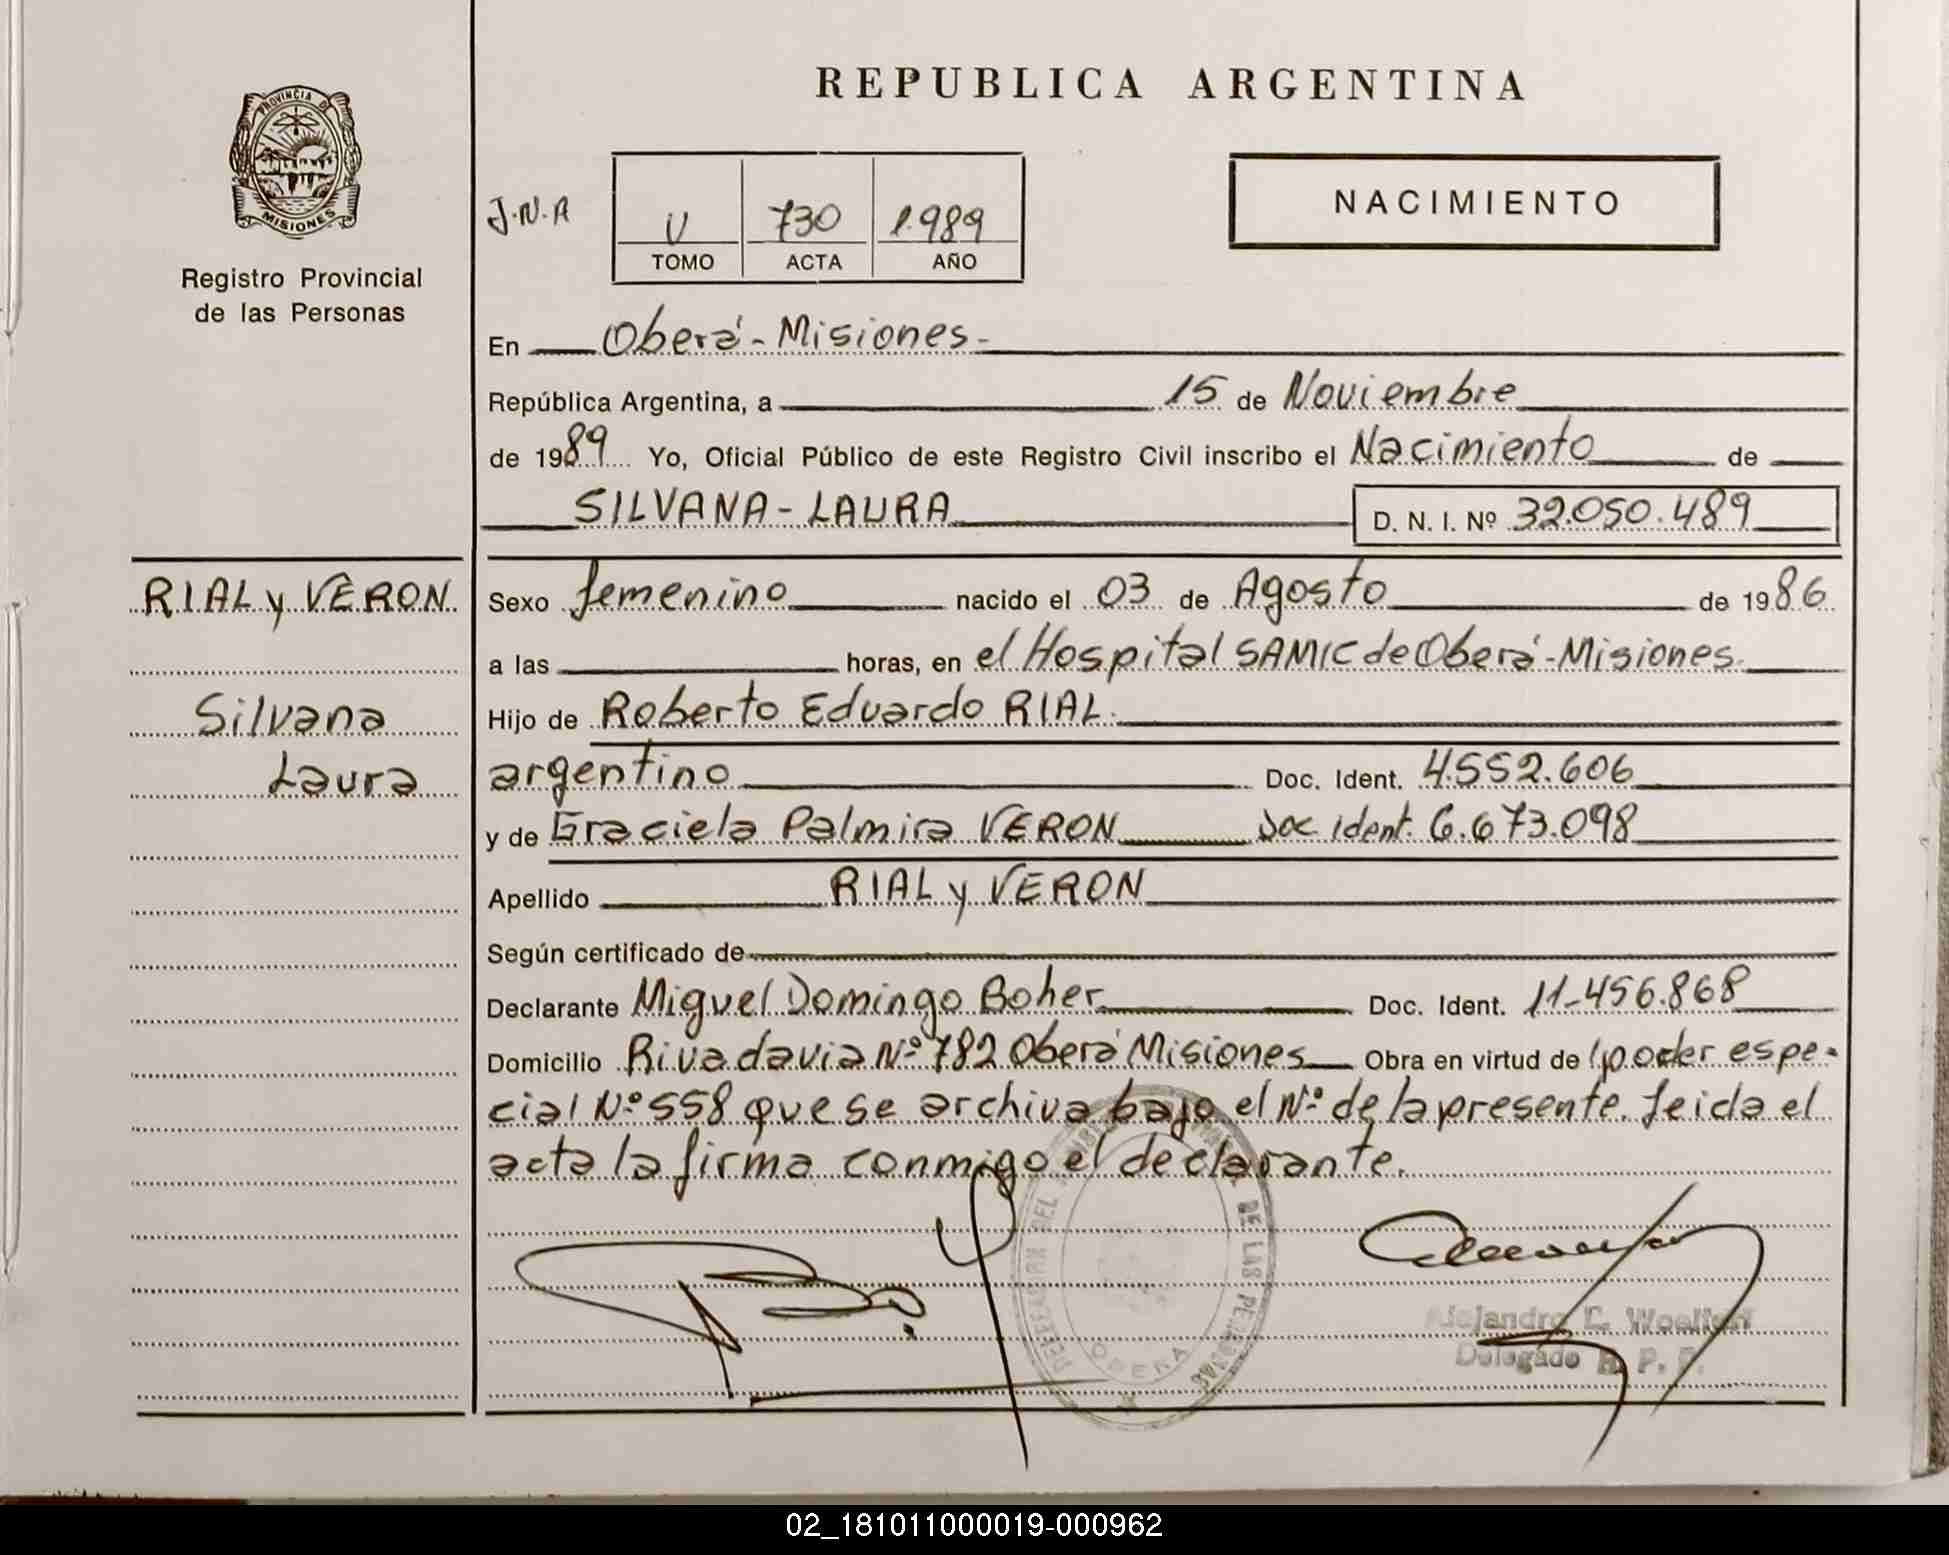 REPUBLICA ARGENTINA
PROVINCIA DE
MISIONES
Registro Provincial
de las Personas
J.N.A
U 730 1.989
TOMO ACTA AÑO
NACIMIENTO
En Oberá - Misiones -
República Argentina, a 15 de Noviembre
de 1989 Yo, Oficial Público de este Registro Civil inscribo el Nacimiento de
SILVANA - LAURA D. N. I. Nº 32.050.489
RIAL y VERON
Silvana
Laura
Sexo femenino nacido el 03 de Agosto de 1986
a las horas, en el Hospital SAMIC de Oberá - Misiones.
Hijo de Roberto Eduardo RIAL.
argentino Doc. Ident. 4.552.606
y de Graciela Palmira VERON Doc ident. 6.673.098
Apellido RIAL y VERON
Según certificado de
Declarante Miguel Domingo Boher Doc. Ident. 11-456.868
Domicilio Rivadavia Nº 782 Oberá Misiones Obra en virtud de poder espe-
cial Nº 558 que se archiva bajo el Nº de la presente. Leida el
acta la firma conmigo el declarante.
DE LAS PERSONAS
OBERA
Alejandro
Delegado R. P. P.
02_181011000019-000962